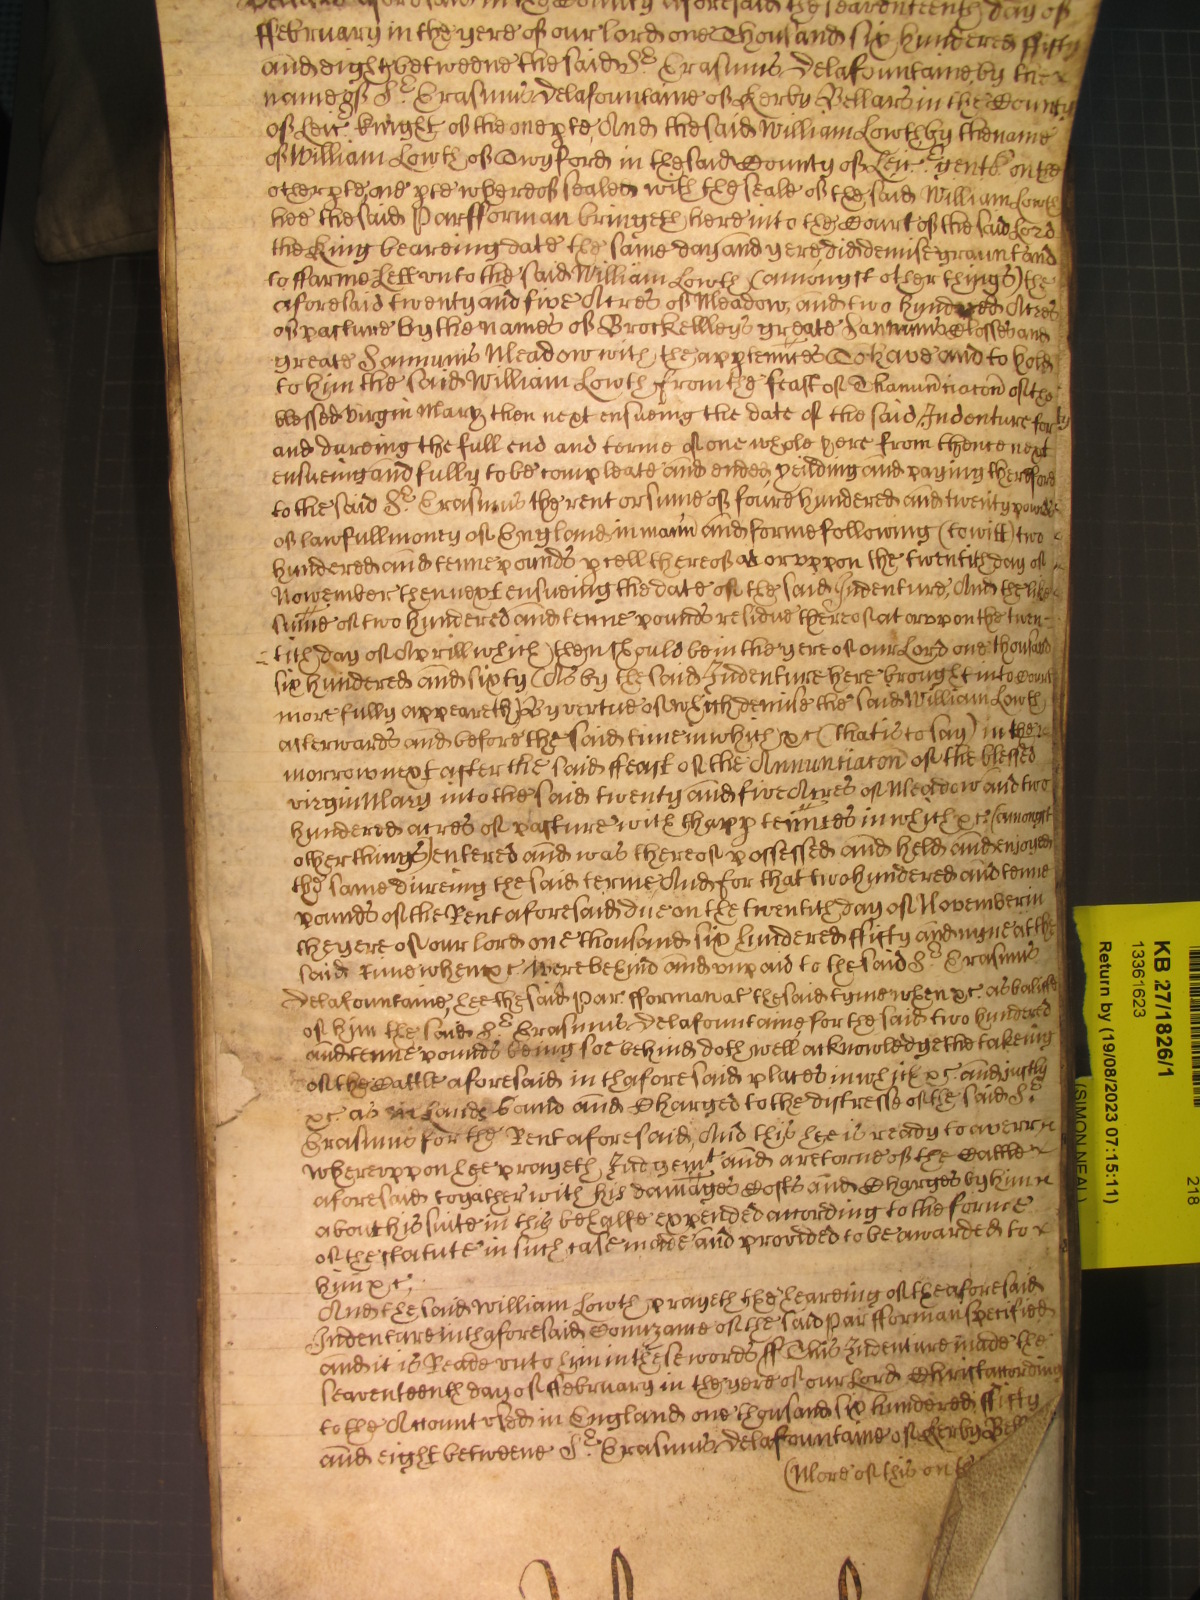 aforesaid in the County aforesaid the seaventeenth day of
ffebruary in the yere of our Lord one Thousand six hundered ffifty
and eight betweene the said Sr. Erasmus Delafountaine by the
name of Sr. Erasmus Delafountaine of Kerby Bellars in the County
of Leic. knight of the one pte And the said William Lowth by the name
of William Lowth of Twyford in the said County of Leic. gent on the
other pte, one pte whereof sealed with the seale of the said William Lowth
hee the said Par fforman bringeth here into the Court of the said Lord
the King beareing date the same day and yere, did demise graunt and
to ffarme Lett unto the said William Lowth (amongst other things) the
aforesaid twenty and five Acres of Meadow, and two hundered Acres
of pasture by the names of Brockelleys greate Closses and
greate Meadow with the apptennces To have and to hold
to him the said William Lowth from the feast of Thanunciacon of the
blessed virgin Mary then next ensueing the date of the said Indenture for
and dureing the full end and terme of one whole yere from thence next
ensueing and fully to be compleate and ended yeilding and paying therefore
to the said Sr. Erasmus the rent or sume of foure hundered and twenty pounds
of lawfull money of England in mann and forme following (to witt) two
hundered and tenne pounds pcell thereof at or uppon the twentith day of
November then next ensueing the date of the said Indenture, And the like
sume of two hundered and tenne pounds residue thereof at or uppon the twen-
tith day of Aprill which then should be in the yere of our Lord one thousand
six hundered and sixty (As by the said Indenture here brought into Court
more fully appeareth) By vertue of which demise the said William Lowth
afterwards and before the said time in which &c (that is to say) in the
morrow next after the said ffeast of the Annunciacon of the blessed
virgin Mary into the said twenty and five Acres of Meadow and two
hundered acres of pasture with thapptennces in which &c. (amongst
other things) entered and was thereof possessed and held and enjoyed
the same dureing the said terme, And for that two hundered and tenne
pounds of the Rent aforesaid due on the twentith day of November in
the yere of our lord one thousand six hundered ffifty and nyne at the
said time when &c were behind and unpaid to the said Sr. Erasmus
Delafountaine, hee the said Par. fforman at the said tyme when &c. as bailiffe
of him the said Sr. Erasmus Delafountaine for the said two hundered
and tenne pounds being soe behind doth well acknowledge the takeing
of the Cattle aforesaid in thaforesaid places in which &c. and justly
&c. as in Lands bound and Charged to the distresse of the said Sr.
Erasmus for the Rent aforesaid, And this hee is ready to averr
whereuppon hee prayeth Judgemt. and a retorne of the Cattle
aforesaid togather with his damages Costs and Charges by him
about his suite in this behalfe expended according to the forme
of the statute in such case made and provided to be awarded to
him &c.
And the said William Lowth prayeth the heareing of the aforesaid
Indenture in thaforesaid Conuzance of the said Par fforman specified
and it is Reade unto him in these words ff This Indenture made the
seaventeenth day of ffebruary in the yere of our Lord Christ according
to the Account used in England one thousand six hundered ffifty
and eight betweene Sr. Erasmus Delafountaine of Kerby
(More of this on
218
KB 27/1826/1
13361623
Return by (19/08/2023 07:15:11)
(SIMON NEAL)